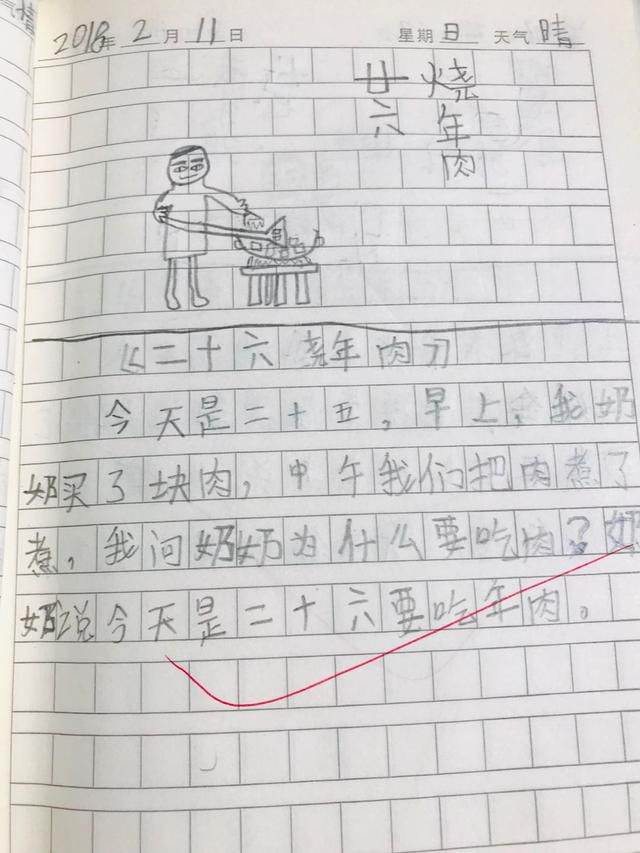 2018年2月11日 星期日 天气晴
廿六
烧年肉
《二十六烧年肉》
今天是二十五，早上，我奶
奶买了块肉，中午我们把肉煮了
煮，我问奶奶为什么要吃肉？奶
奶说今天是二十六要吃年肉。